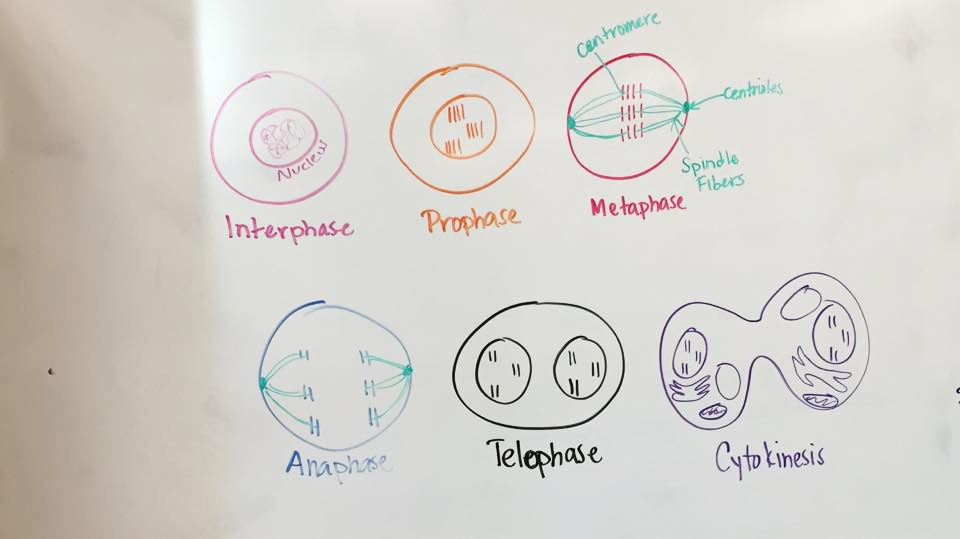 Nuclear
Interphase
Prophase
Centromere
Centrioles
Spindle
Fibers
Metaphase
Anaphase
Telephase
Cytokinesis